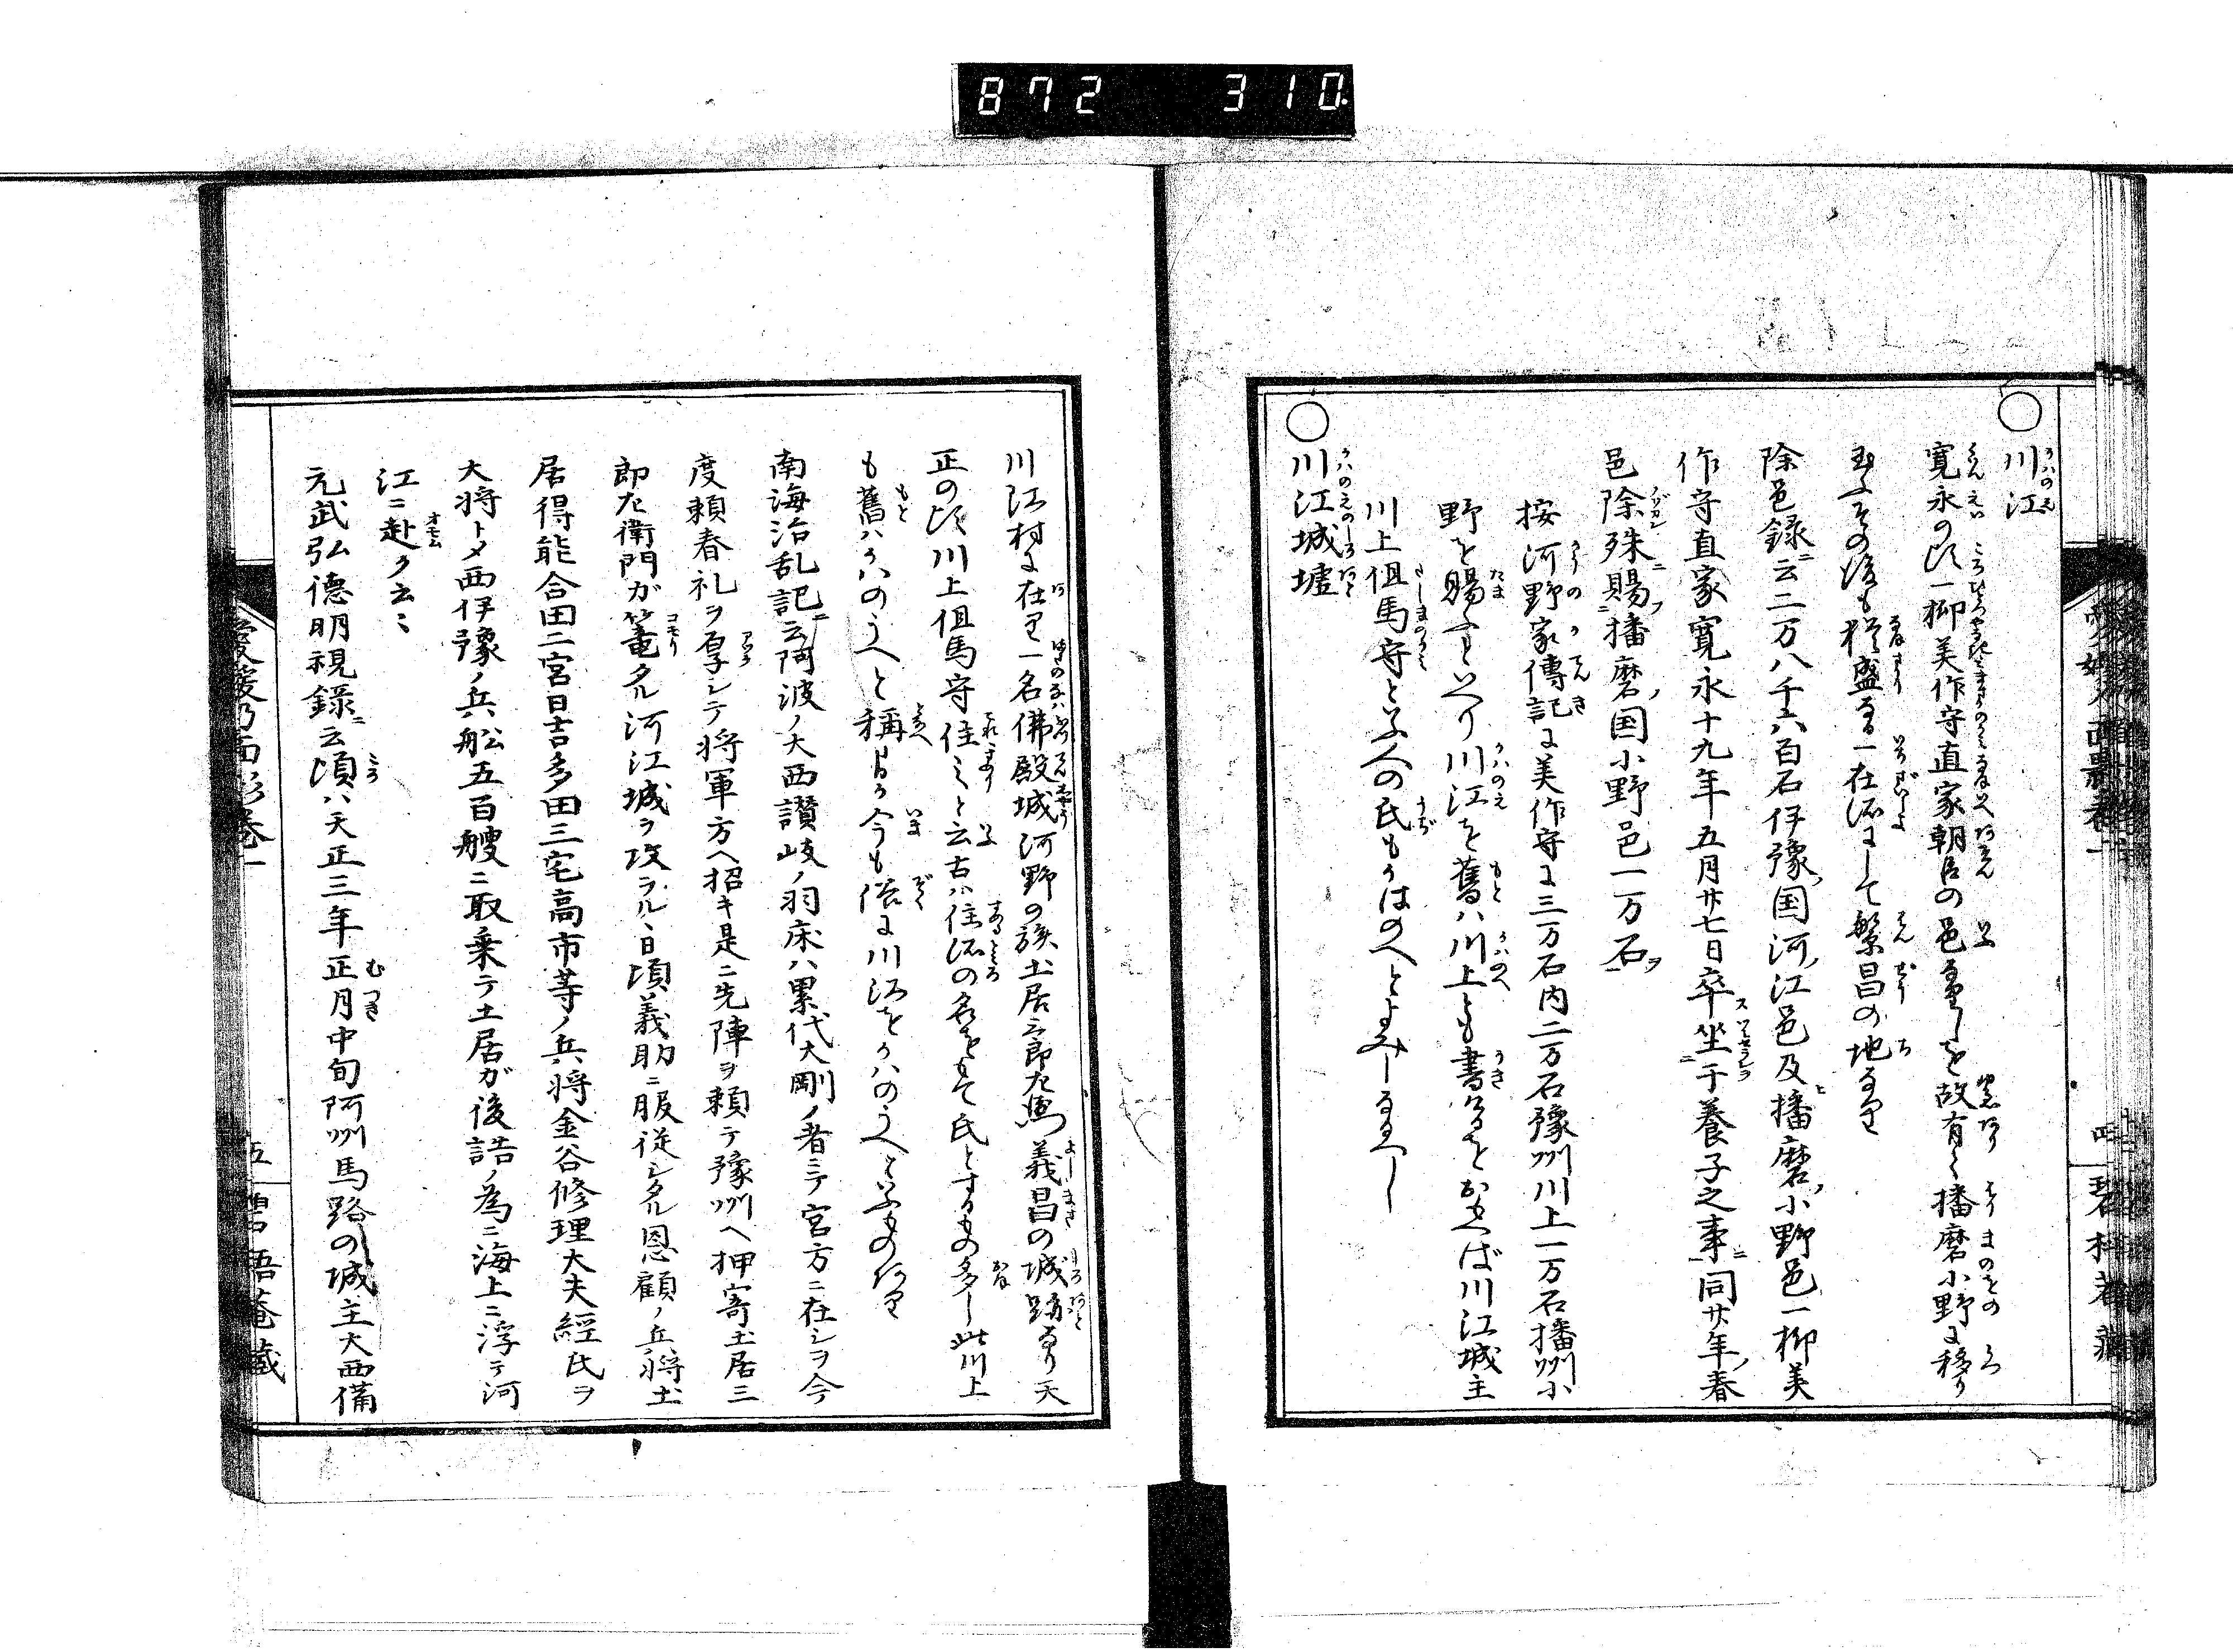 872 310
川江
寛永の頃一柳美作守直家朝臣の邑なりしを故有て播磨小野に移り
玉ふその後も猶盛なる一在所にして繁昌の地なり
除邑録ニ云二万八千六百石伊豫ノ国河ノ江邑及播磨ノ小野邑一柳美
作守直家寛永十九年五月廿七日卒坐于養子之事ニ同廿年ノ春
邑除殊ニ賜フ播磨ノ国小野邑一万石ヲ
按河野家傳記に美作守に三万石内二万石豫州川上一万石播州小
野を賜ふといへり川江を舊ハ川上とも書けるをおもへば川江城主
川上但馬守といふ人の氏もかはのへとよみしなるべし
川江城墟
川江村に在り一名佛殿城河野の族土居三郎左馬義昌の城跡なり天
正の頃川上但馬守住之と云古ハ住所の名をもて氏とするもの多し此川上
も舊ハかハのうへと稱しか今も俗に川江をかハのうへといふものあり
南海治乱記ニ云阿波ノ大西讃岐ノ羽床ハ累代大剛ノ者ニテ宮方ニ在シヲ今
度頼春礼ヲ厚シテ将軍方へ招キ是ニ先陣ヲ頼テ豫州へ押寄土居三
郎左衛門ガ篭タル河江城ヲ攻ラルヽ日頃義助ニ服従シタル恩顧ノ兵将土
居得能合田二宮日吉多田三宅高市等ノ兵将金谷修理大夫經氏ヲ
大将トメ西伊豫ノ兵船五百艘ニ取乗テ土居ガ後詰ノ為ニ海上ニ浮テ河
江ニ赴ク云々
元武弘徳明視録ニ云頃ハ天正三年正月中旬阿州馬路の城主大西備
愛媛乃面影巻一
五
碧梧菴藏